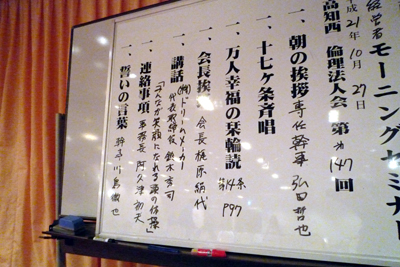 経営者モーニングセミナー
成21年10月27日
高知西 倫理法人会 第147回
一、朝の挨拶 専任幹事 弘田哲也
一、十七ケ条斉唱
一、万人幸福の栞輪読 第14条 P97
一、会長挨 会長 梶原絹代
一、講話 (株)ドリームメーカー
代表取締役 鈴木
「みんなが英雄になれる
一、連絡事項 事務長 阿久津
一、誓いの言葉 幹事 川島